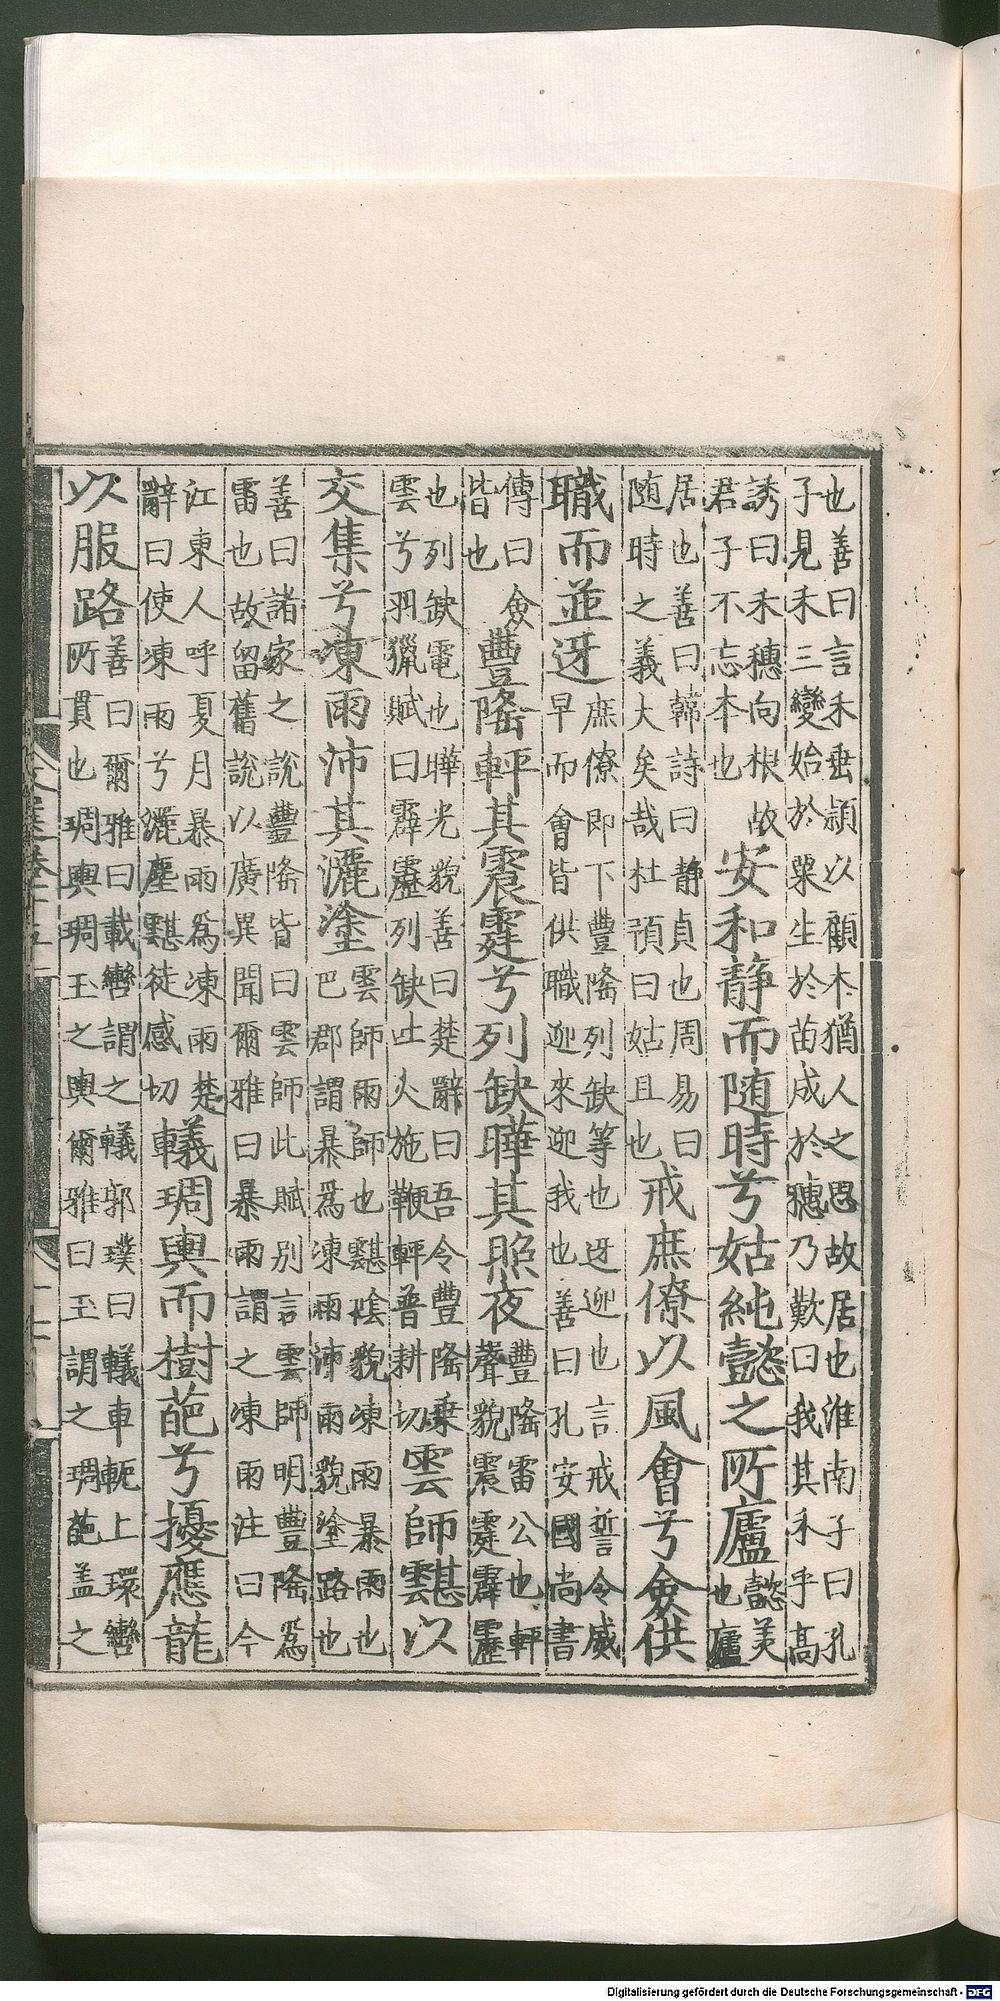 也善曰言禾垂頴以顧本猶人之思故居也淮南子曰孔
子見禾三變始於粟生於苗成於穗乃歎曰我其禾乎髙
誘曰禾穗向根故
君子不忘本也
安和静而随時兮姑純懿之所廬
懿美
也廬
居也善曰韓詩曰静貞也周易曰
随時之義大矣哉杜預曰姑且也
戒庶僚以風會兮僉供
職而並迓
庶僚即下豐隆列缺等也迓迎也言戒誓令威
早而會皆供職迎來迎我也善曰孔安國尚書
傳曰僉
皆也
豐隆軯其震霆兮列缺曄其照夜
豐隆雷公也軯
聲貌震霆霹靂
也列缺電也曄光貌善曰楚辭曰吾令豐隆乗
雲兮羽獵賦曰霹靂列缺吐火施鞭軯普耕切
雲師䨴以
交集兮凍雨沛其灑塗
雲師雨師也䨴陰貌凍雨暴雨也
巴郡謂暴爲凍雨沛雨貌塗路也
善曰諸家之說豐隆皆曰雲師此賦別言雲師明豐隆爲
雷也故留舊說以廣異聞爾雅曰暴雨謂之凍雨注曰今
江東人呼夏月暴雨爲凍雨楚
辭曰使凍雨兮灑塵䨴徒感切
轙琱輿而樹葩兮擾應龍
以服路
善曰爾雅曰載轡謂之轙郭璞曰轙車軛上環轡
所貫也琱輿琱玉之輿爾雅曰玉謂之琱葩盖之
Digitalisierung gefördert durch die Deutsche Forschungsgemeinschaft - DFG